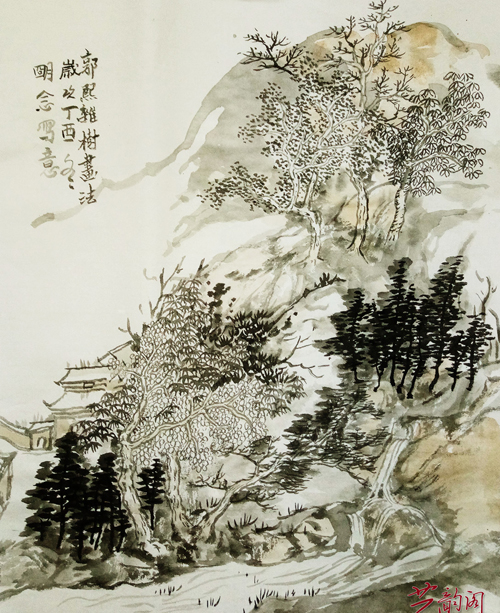 郭熙雜樹畫法
歲次丁酉冬
明念寫意
艺韵阁